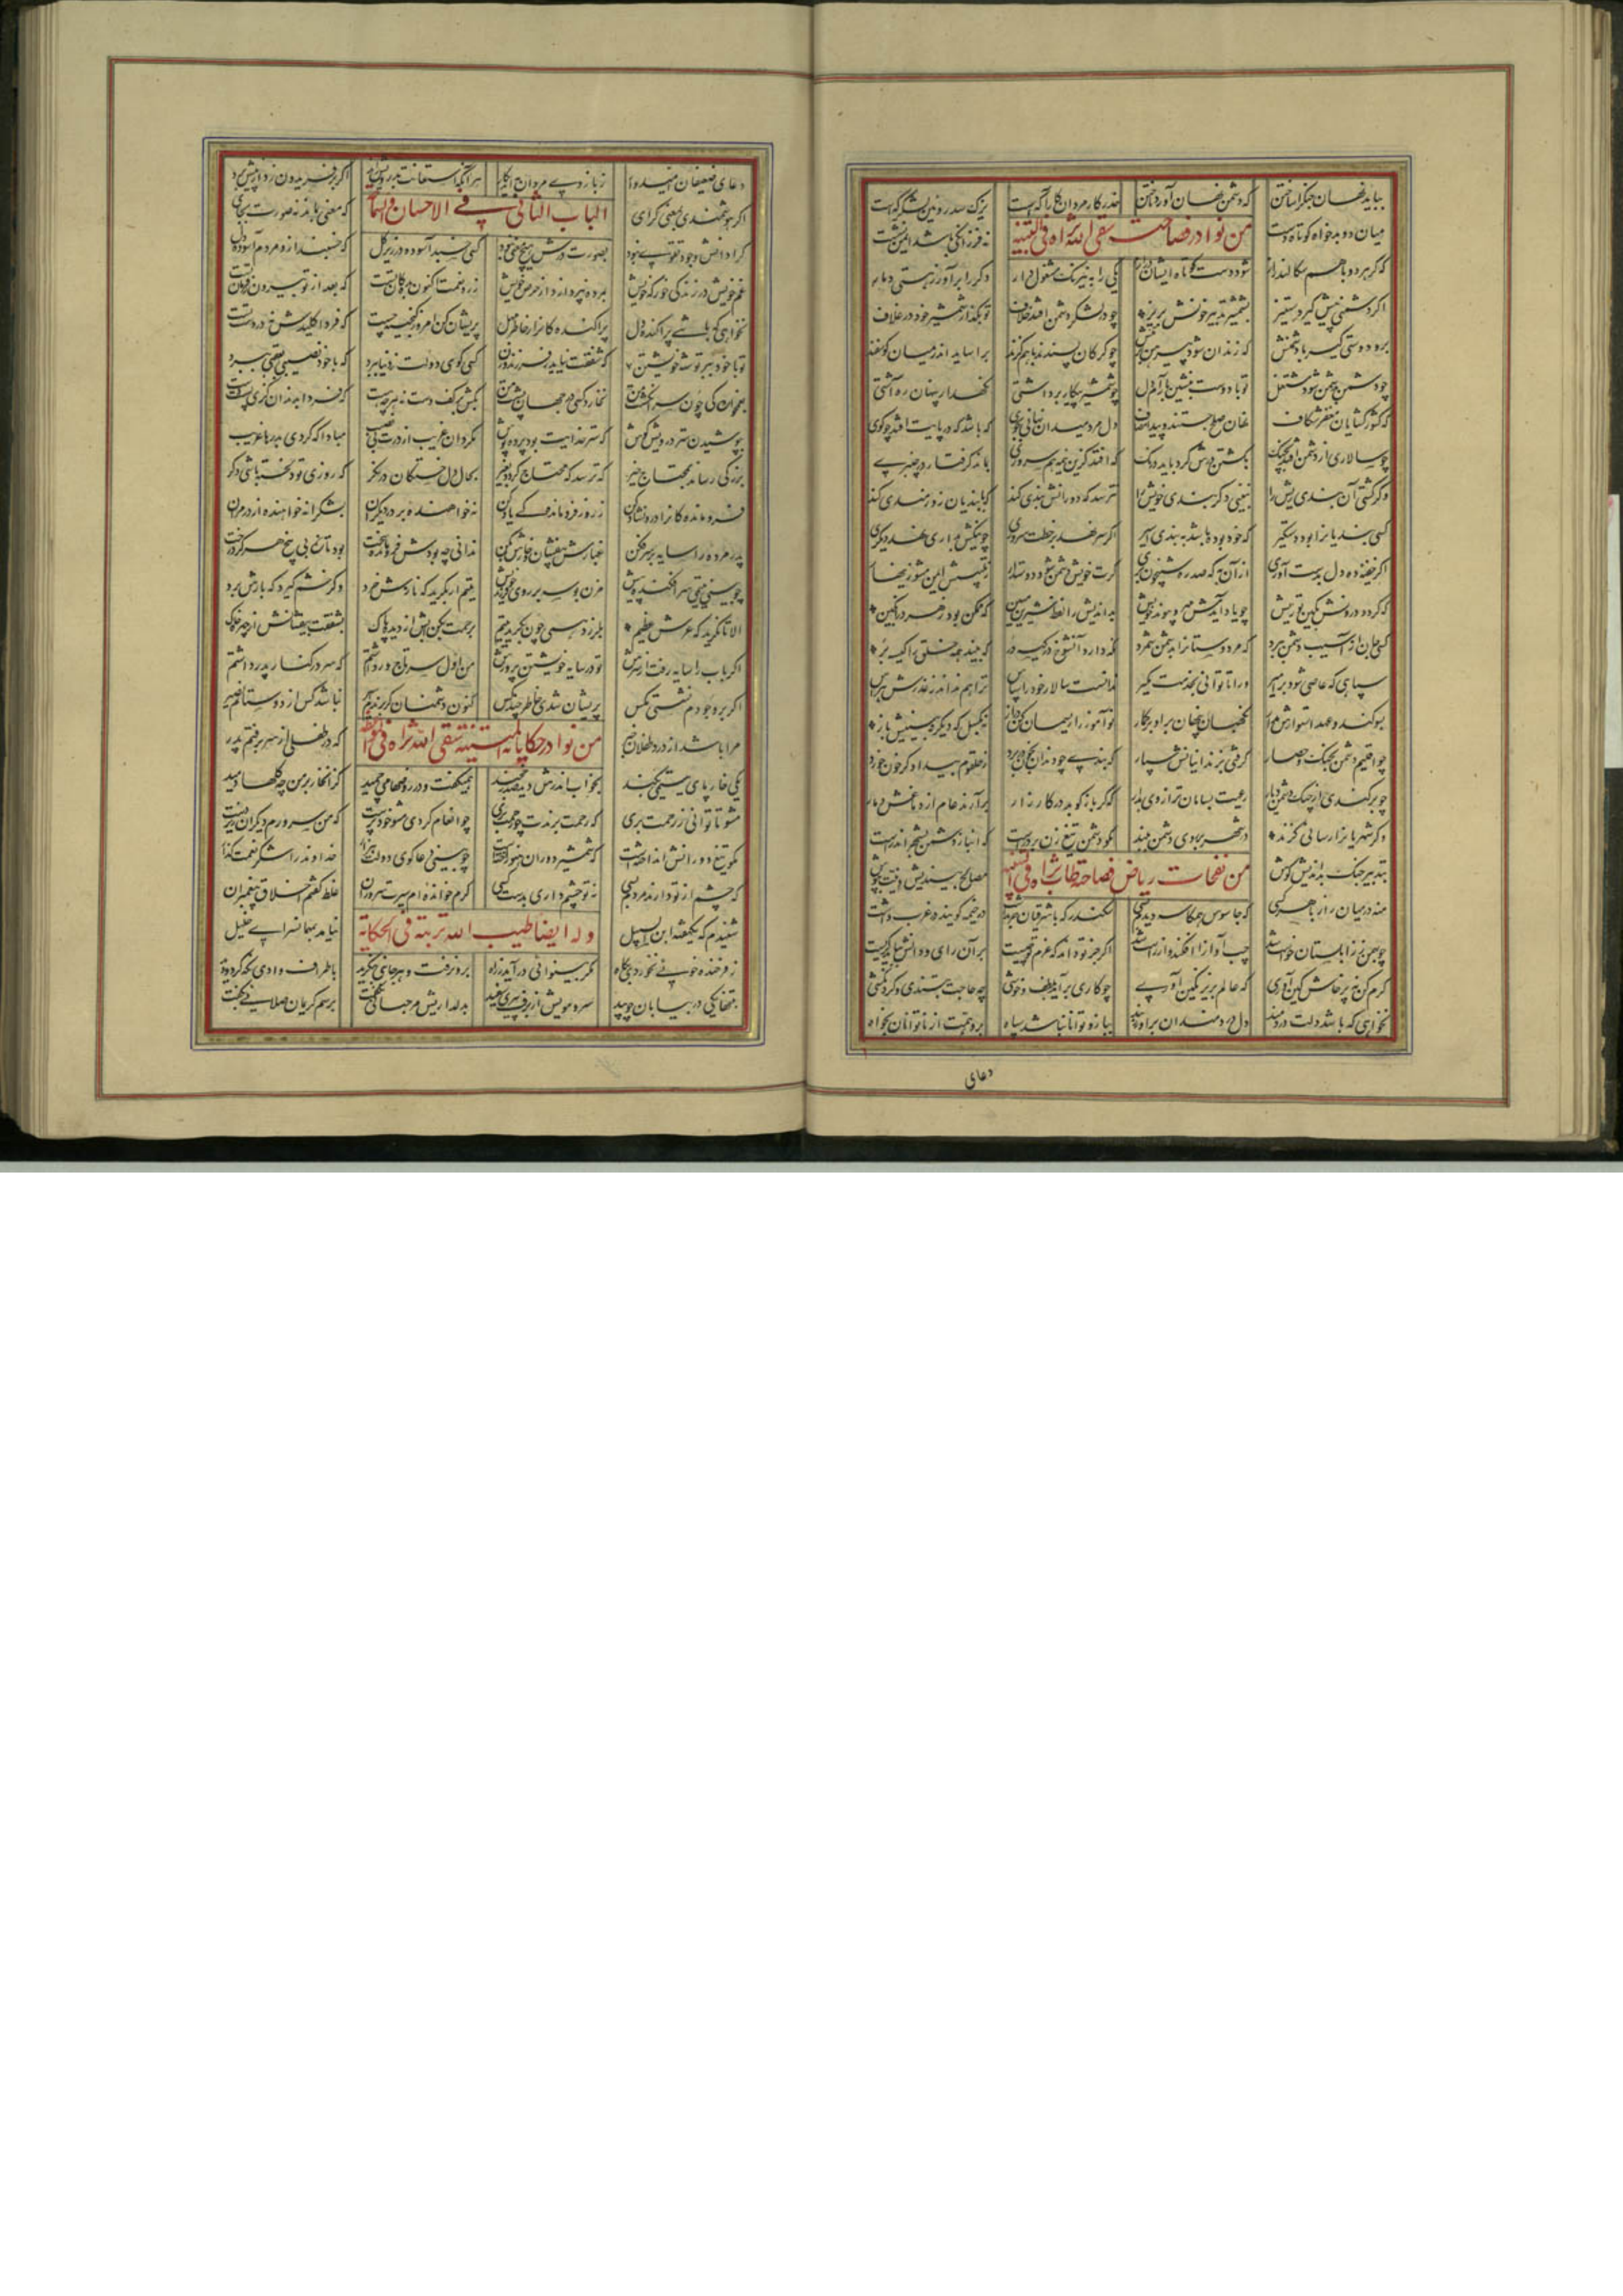 بباید نهان جنگ را ساختن که دشمن نهان آورد تاختن حذر کار مردان کارآگهست یزک سد رویین لشکرگهست
میان دو بدخواه کوتاه دست من نوادر فصاحته سقی الله ثراه فی التنبیه نه فرزانگی باشد ایمن نشست
که گر هر دو با هم سگالند راز شود دست کوتاه ایشان دراز یکی را به نیرنگ مشغول دار دگر را برآور ز هستی دمار
اگر دشمنی پیش گیرد ستیز بشمشیر تدبیر خونش بریز چو در لشکر دشمن افتد خلاف تو بگذار شمشیر خود در غلاف
برو دوستی گیر با دشمنش که زندان شود پیرهن بر تنش چو گرگان پسندند با هم گزند برآساید اندر میان گوسفند
چو دشمن بدشمن شود مشتغل تو با دوست بنشین بآرام دل چو شمشیر پیکار برداشتی نگهدار پنهان ره آشتی
که کشورگشایان مغفر شکاف نهان صلح جستند و پیدا مصاف دل مرد میدان نهانی بجوی که باشد که در پایت افتد چو گوی
چو سالاری از دشمن افتد بچنگ بکشتن درش کرد باید درنگ که افتد کزین نیمه هم سروری بماند گرفتار در چنبری
وگر کشتی آن بندی ریش را نبینی دگر بندی خویش را نترسد که دورانش بندی کند که بر بندیان زورمندی کند
کسی بندیانرا بود دستگیر که خود بوده باشد به بندی اسیر اگر سر نهد بر خطت سروری چو نیکش بداری نهد دیگری
اگر خفیه ده دل بدست آوری از آن به که صد ره شبیخون بری گرت خویش دشمن شود دوستدار ز تلبیسش ایمن مشو زینهار
که گردد درونش بکین تو ریش چو یاد آیدش مهر و پیوند خویش بداندیش را لفظ شیرین مبین که ممکن بود زهر در انگبین
کسی جان از آسیب دشمن ببرد که مر دوستانرا بدشمن شمرد نگه دارد آن شوخ در کیسه در که بیند همه خلق را کیسه بر
سپاهی که عاصی شود بر امیر ورا تا توانی بخدمت مگیر ندانست سالار خود را سپاس ترا هم نداند ز غدرش هراس
بسوگند و عهد استوارش مدار نگهبان پنهان برو بر گمار نوآموز را ریسمان کن دراز نه بگسل که دیگر نبینیش باز
چو اقلیم دشمن بجنگ و حصار گرفتی بزندانیانش سپار که بندی چو دندان بخون در برد ز حلقوم بیدادگر خون خورد
چو برکندی از چنگ دشمن دیار رعیت بسامان تر از وی بدار که گر باز کوبد در کارزار برآرند عام از دماغش دمار
وگر شهریانرا رسانی گزند در شهر بر روی دشمن مبند مگو دشمن تیغ زن بر درست که انباز دشمن بشهر اندرست
بتدبیر جنگ بداندیش کوش من نفحات ریاض فصاحته طاب ثراه فی التنبیه مصالح بیندیش و نیت بپوش
منه در میان راز با هر کسی که جاسوس همکاسه دیدم بسی سکندر که با شرقیان حرب داشت در خیمه گویند در غرب داشت
چو بهمن بزابلستان خواست شد چپ آوازه افکند و از راست شد اگر جز تو داند که عزم تو چیست بر آن رای و دانش بباید گریست
کرم کن نه پرخاش و کین آوری که عالم بزیر نگین آوری چو کاری برآید بلطف و خوشی چه حاجت بتندی و گردنکشی
نخواهی که باشد دلت دردمند دل دردمندان برآور ز بند ببازو توانا نباشد سپاه برو همت از ناتوانان بخواه
دعای
دعای ضعیفان امیدوار ز بازوی مردان به آید بکار هر آنکه استعانت بدرویش برد اگر بر فریدون زد از پیش برد
اگر هوشمندی بمعنی گرای الباب الثانی فی الاحسان که معنی بماند نه صورت بجای
کرا دانش و جود و تقوی نبود بصورت درش هیچ معنی نبود کسی خسبد آسوده در زیر گل که خسبند ازو مردم آسوده دل
غم خویش در زندگی خور که خویش بمرده نپردازد از حرص خویش زر و نعمت اکنون بده کان تست که بعد از تو بیرون ز فرمان تست
نخواهی که باشی پراکنده دل پراکندگانرا ز خاطر مهل پریشان کن امروز گنجینه چست که فردا کلیدش نه در دست تست
تو با خود ببر توشه خویشتن که شفقت نیاید ز فرزند و زن کسی گوی دولت ز دنیا برد که با خود نصیبی بعقبی برد
بغمخوارگی چون سر انگشت من نخارد کسی در جهان پشت من مکن بر کف دست نه هر چه هست که فردا بدندان گزی پشت دست
بپوشیدن ستر درویش کوش که ستر خدایت بود پرده پوش مگردان غریب از درت بی نصیب مبادا که گردی بدرها غریب
بزرگی رساند بمحتاج خیر که ترسد که محتاج گردد بغیر بحال دل خستگان در نگر که روزی تو دلخسته باشی مگر
فروماندگانرا درون شاد کن ز روز فروماندگی یاد کن نه خواهنده بر در دیگران بشکرانه خواهنده از در مران
پدر مرده را سایه بر سر فکن غبارش بیفشان و خارش بکن ندانی چه بودش فرومانده سخت بود تازه بی بیخ هرگز درخت
چو بینی یتیمی سر افکنده پیش مزن بوسه بر روی فرزند خویش یتیم ار بگرید که نازش خرد وگر خشم گیرد که بارش برد
الا تا نگرید که عرش عظیم بلرزد همی چون بگرید یتیم برحمت بکن آبش از دیده پاک بشفقت بیفشانش از چهره خاک
اگر باب را سایه رفت از سرش تو در سایه خویشتن پرورش من اول سر تاجور داشتم که سر در کنار پدر داشتم
اگر بر وجودم نشستی مگس پریشان شدی خاطر چند کس کنون دشمنان گر برندم اسیر نباشد کس از دوستانم نصیر
مرا باشد از درد طفلان خبر من نوادر حکایاته المتینه سقی الله ثراه که در طفلی از سر برفتم پدر
یکی خار پای یتیمی بکند بخواب اندرش دید صدر خجند همیگفت و در روضها میچمید کزان خار بر من چه گلها دمید
مشو تا توانی ز رحمت بری که رحمت برندت چو رحمت بری چو انعام کردی مشو خودپرست که من سرورم دیگران زیردست
مگو تیغ دورانش انداختست که شمشیر دوران هنوز آختست چو بینی دعاگوی دولت هزار خداوند را شکر نعمت گذار
که چشم از تو دارند مردم بسی نه تو چشم داری بدست کسی کرم خوانده‌ام سیرت سروران غلط گفتم اخلاق پیغمبران
شنیدم که یکهفته ابن السبیل وله ایضا طیب الله تربته فی الحکایة نیامد بمهمانسرای خلیل
ز فرخنده خویی نخوردی پگاه مگر بینوائی درآید ز راه برون رفت و هر جانبی بنگرید باطراف وادی نگه کرد و دید
بتنها یکی در بیابان چو بید سر و مویش از برف پیری سفید بدلداریش مرحبائی بگفت برسم کریمان صلائی بگفت